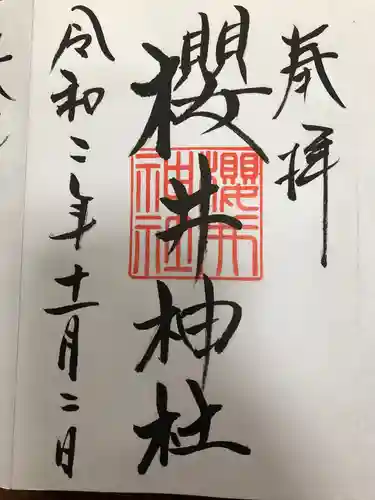 奉拝
櫻井神社
櫻井
神社
令和二年十一月二日